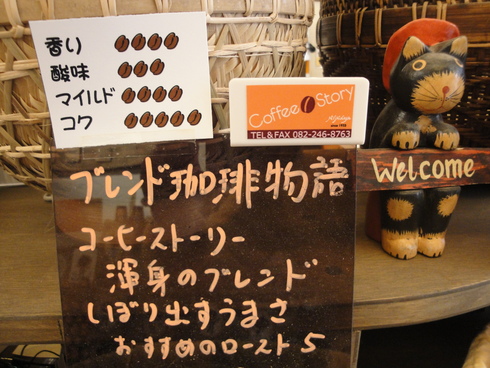 香り
酸味
マイルド
コク
Coffee Story
since 1988
TEL & FAX 082-246-8763
Welcome
ブレンド珈琲物語
コーヒーストーリー
渾身のブレンド
いぼり出すうまさ
おすすめのロースト 5